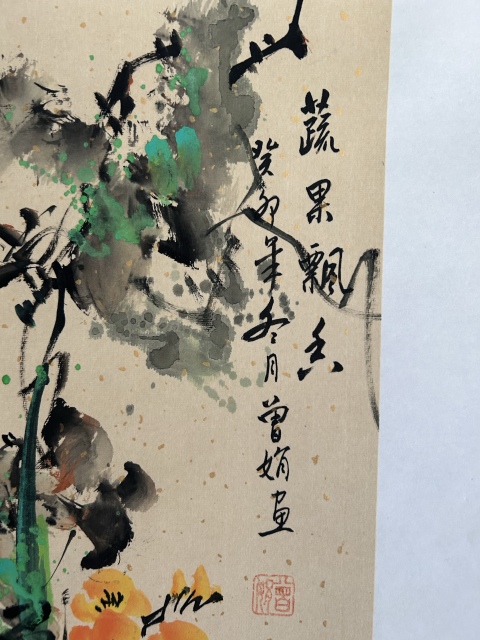 蔬果飘香
癸卯年冬月曾娟画
曾娟